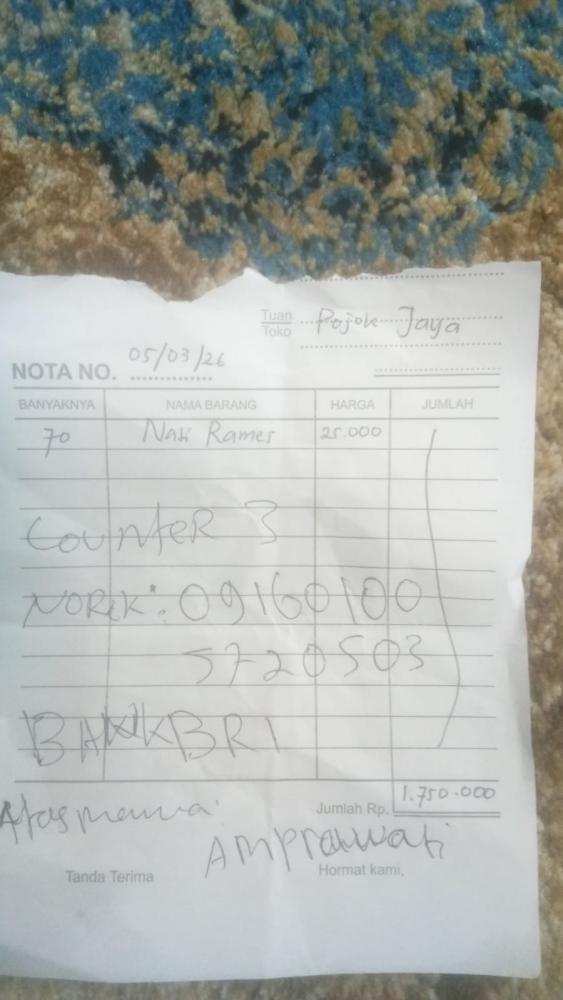 Tuan
Toko Pojok Jaya
05/03/26
NOTA NO.
BANYAKNYA NAMA BARANG HARGA JUMLAH
70 Nasi Rames 25.000
COUNTER 3
NOREK: 09160100
5720503
BANK BRI
Jumlah Rp. 1.750.000
Atas nama
Amprawati
Tanda Terima Hormat kami,